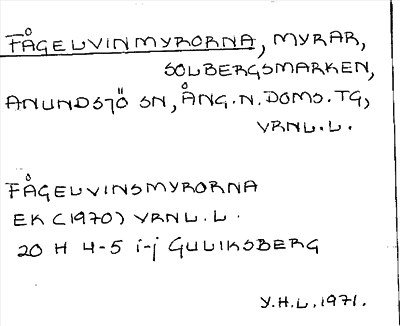 FÅGELVINMYRORNA, MYRAR,
SOLBERGSMARKEN,
ANUNDSJÖ SN, ÅNG. N. DOMS. TG,
VRNL. L.
FÅGELVINSMYRORNA
EK (1970) VRNL. L.
20 H 4-5 i-j GULIKSBERG
Y.H.L. 1971.